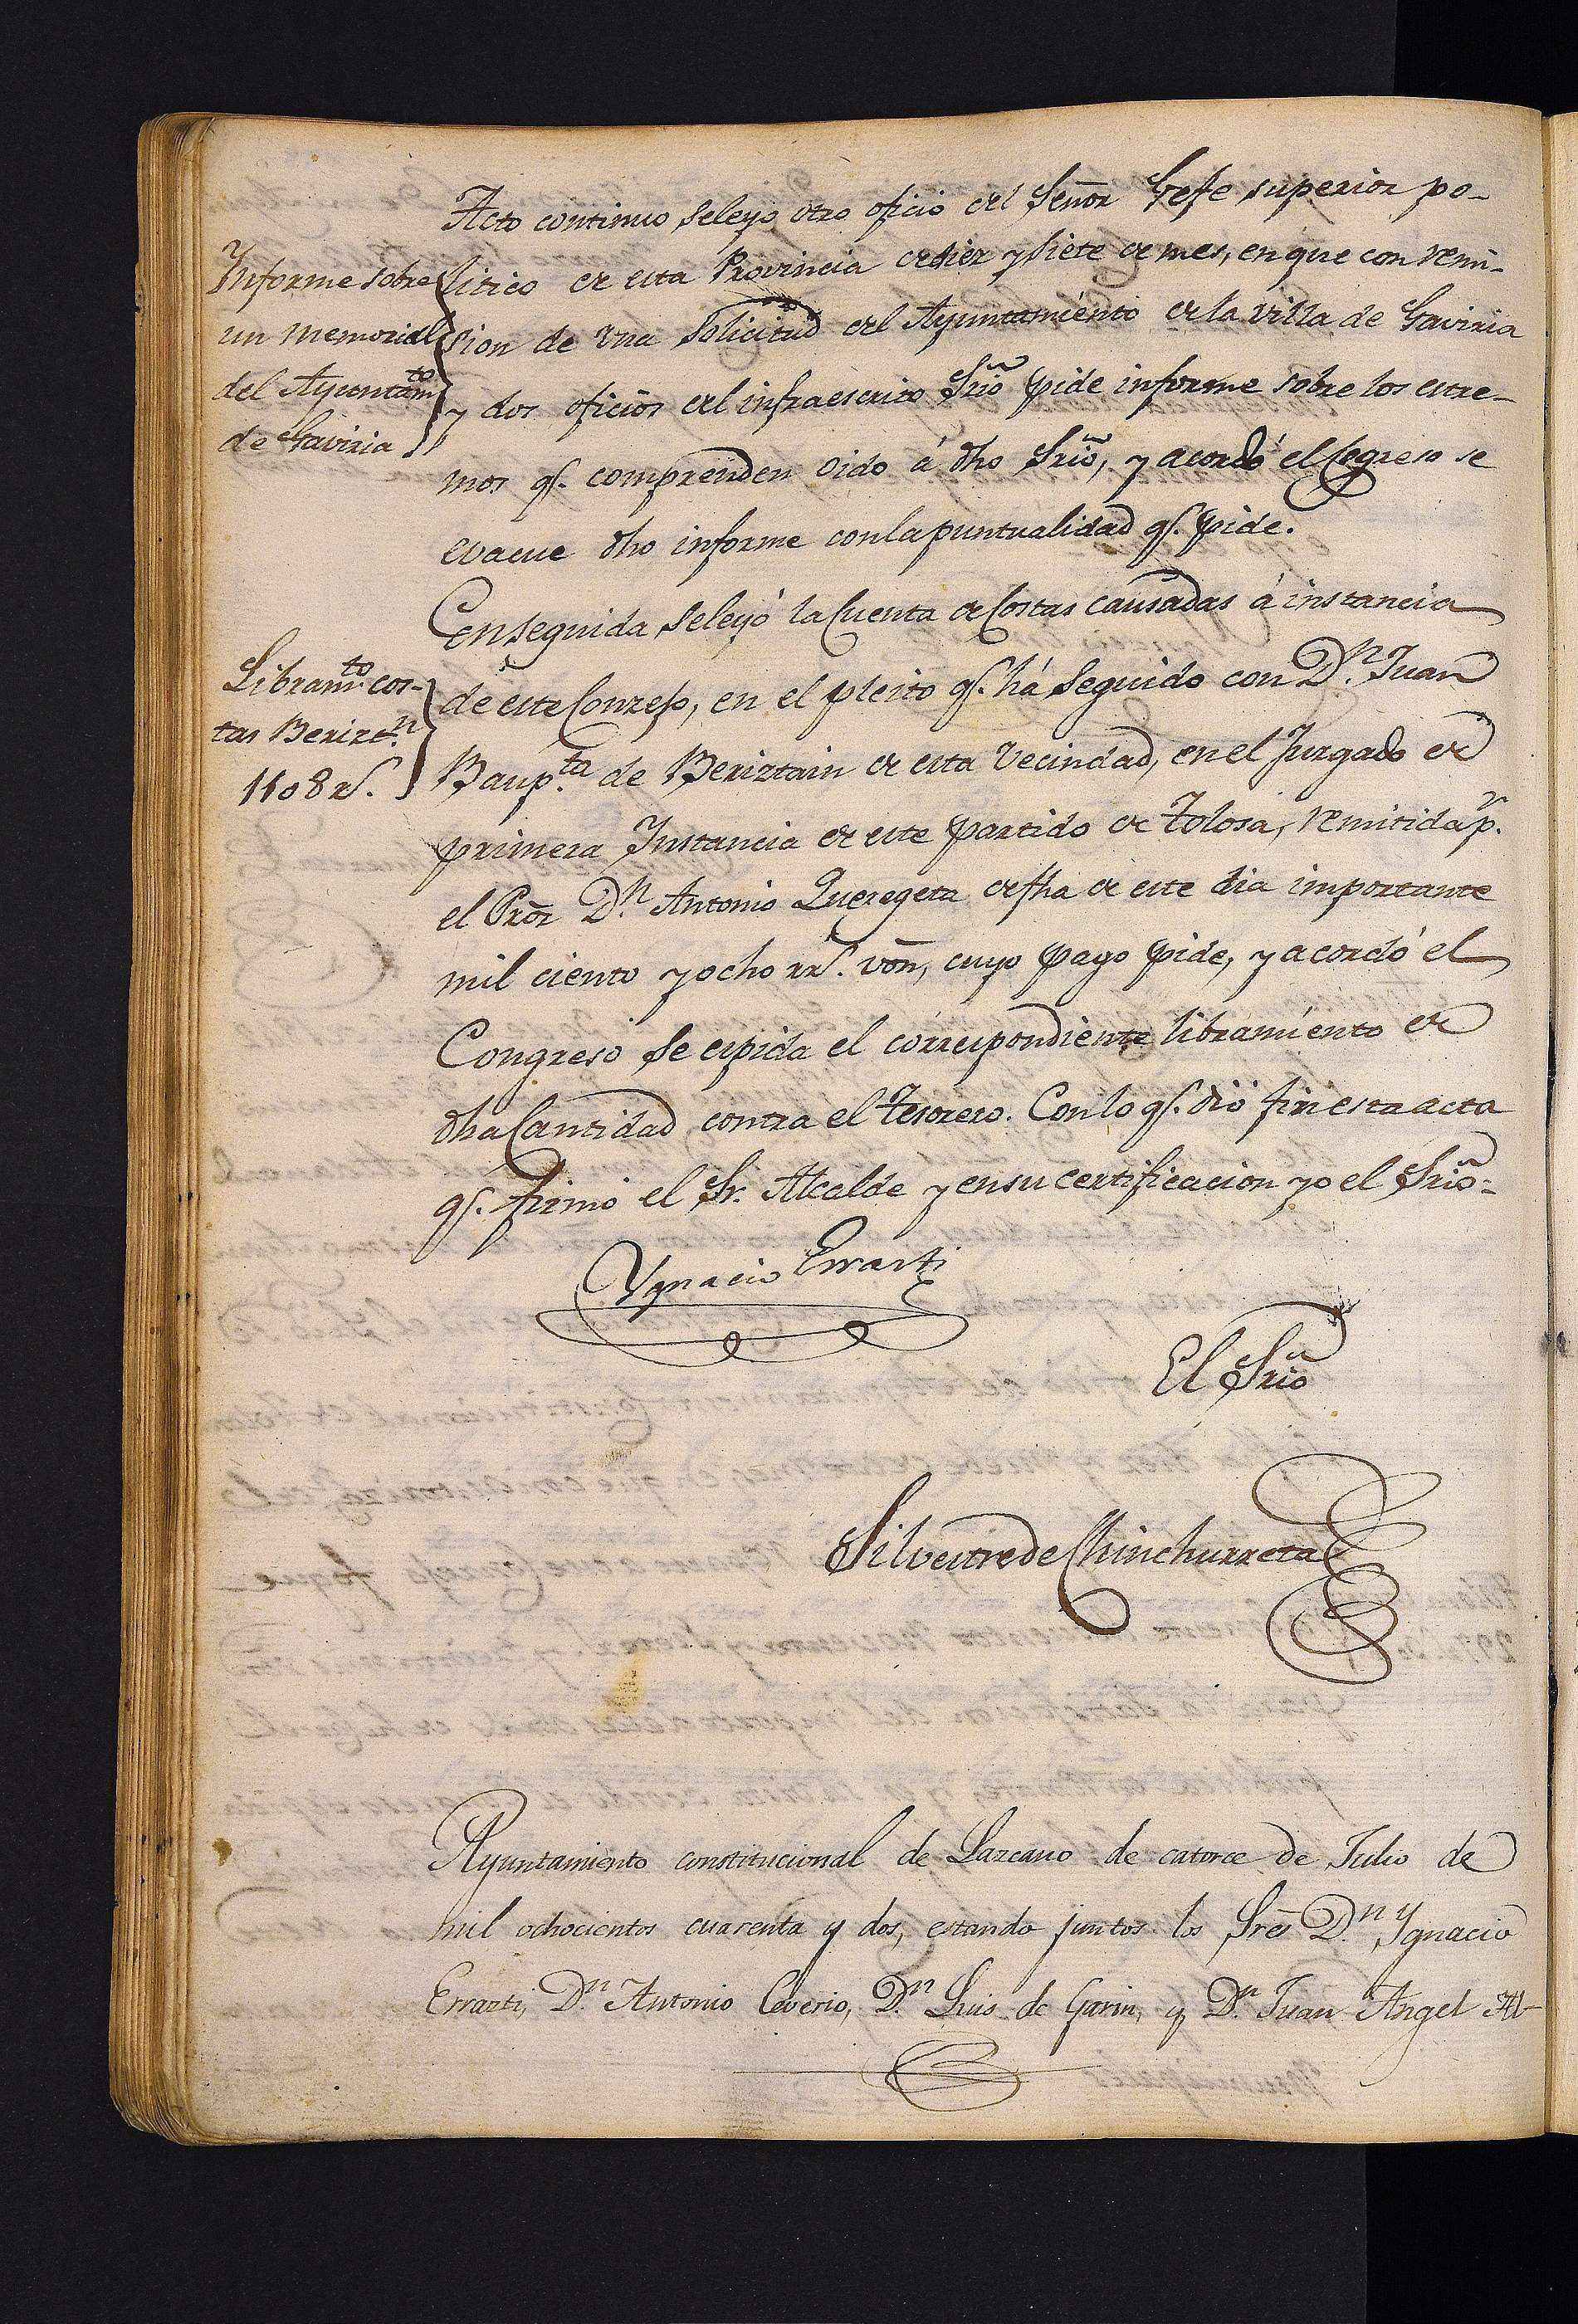 Acto continuo se leyo otro oficio del Señor Gefe superior po-
Informe sobre
un memorial
del Ayuntam.to
de Gaviria
litico de esta Provincia de diez y siete de mes, en que con remi-
sion de una solicitud del Ayuntamiento de la villa de Gaviria
y dos oficios del infraescrito Srio pide informe sobre los estre-
mos q.e comprenden oido á dho Srio, y acordó el Cogreso se
evacue dho informe con la puntualidad q.e pide.
Enseguida se leyó la Cuenta de Costas causadas á instancia
Libram.to cos-
tas Berizt.n
1108 r.s
de este Conzejo, en el pleito q.e há seguido con D.n Juan
Baup.ta de Beriztain de esta vecindad, en el Juzgado de
primera Instancia de este partido de Tolosa, remitida p.r
el Prór D.n Antonio Queregeta de fha de este dia importante
mil ciento y ocho rr.s von, cuyo pago pide, y acordó el
Congreso se espida el correspondiente libramiento de
dha Cantidad contra el tesorero. Con lo q.e dió fin esta acta
q.e firmó el Sr. Alcalde y en su certificacion yo el Srio=
Ygnacio Errasti
El Srio
Silvestre de Chinchurreta
Ayuntamiento constitucional de Lazcano de catorce de Julio de
mil ochocientos cuarenta y dos, estando juntos los Sres D.n Ygnacio
Errazti, D.n Antonio Ceverio, D.n Luis de Garin, y D.n Juan Angel Al-